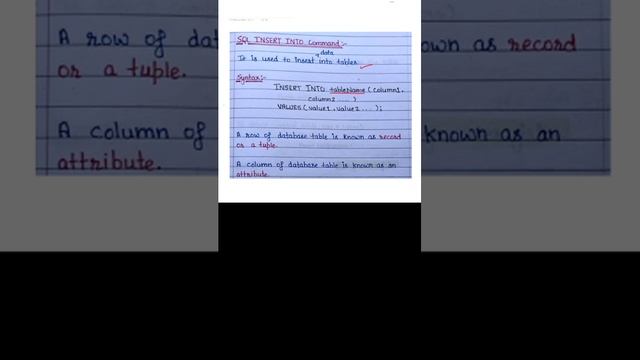 SQL INSERT INTO Command:-
data
It is used to insert into tables
Syntax:-
INSERT INTO tableName (column1,
column2 .... )
VALUES (value1, value2 .... );
A row of database table is known as record
or a tuple.
A column of database table is known as an
attribute.
A row of dat
own as record
or a tuple.
A column of
known as an
attribute.